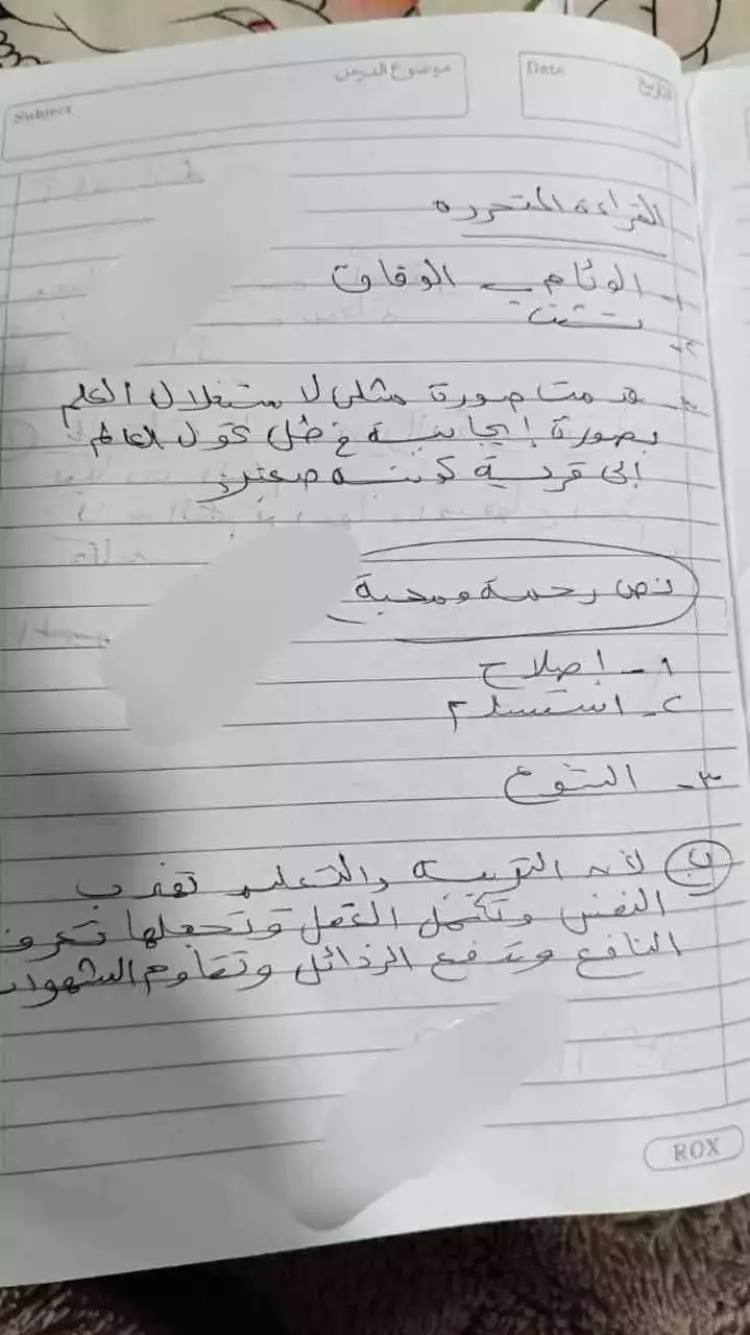 موضوع الدرس
Subject
Date
التاريخ
القراءة المتحررة
١- الوئام - الوفاق
٢- تشتت
٣- قدمت صورة مثلى لاستغلال العلم
بصورة إيجابية في ظل تحول العالم
إلى قرية كونية صغيرة
نص رحمة ومحبة
١- إصلاح
٢- استسلام
٣- التنوع
ب لأن التربية والتعليم تهذب
النفس وتكمل العقل وتجعلها تعرف
النافع وتدفع الرذائل وتقاوم الشهوات
ROX